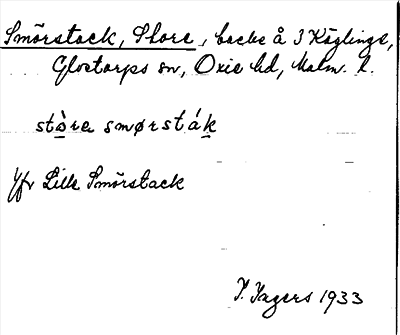 Smörstack, Store, backe å 3 Käglinge,
Glostorps sn, Oxie hd, Malm. l.
stòra smørsták
Jfr Lille Smörstack
I. Ingers 1933